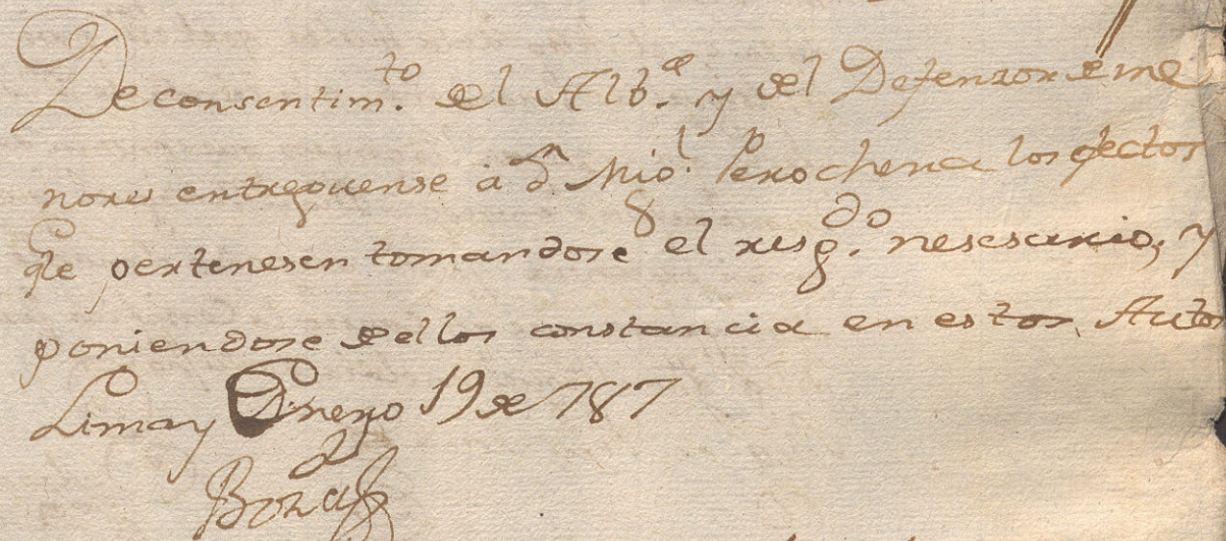 De consentim.to del Alb.a y del Defenzor de me
nores entreguense a dn Mig.l Perochena los efectos
qe le pertenesen tomandose el resg.do nesesario, y
poniendose dellos constancia en estos Autos
Lima y Enero 19 de 787
Boza